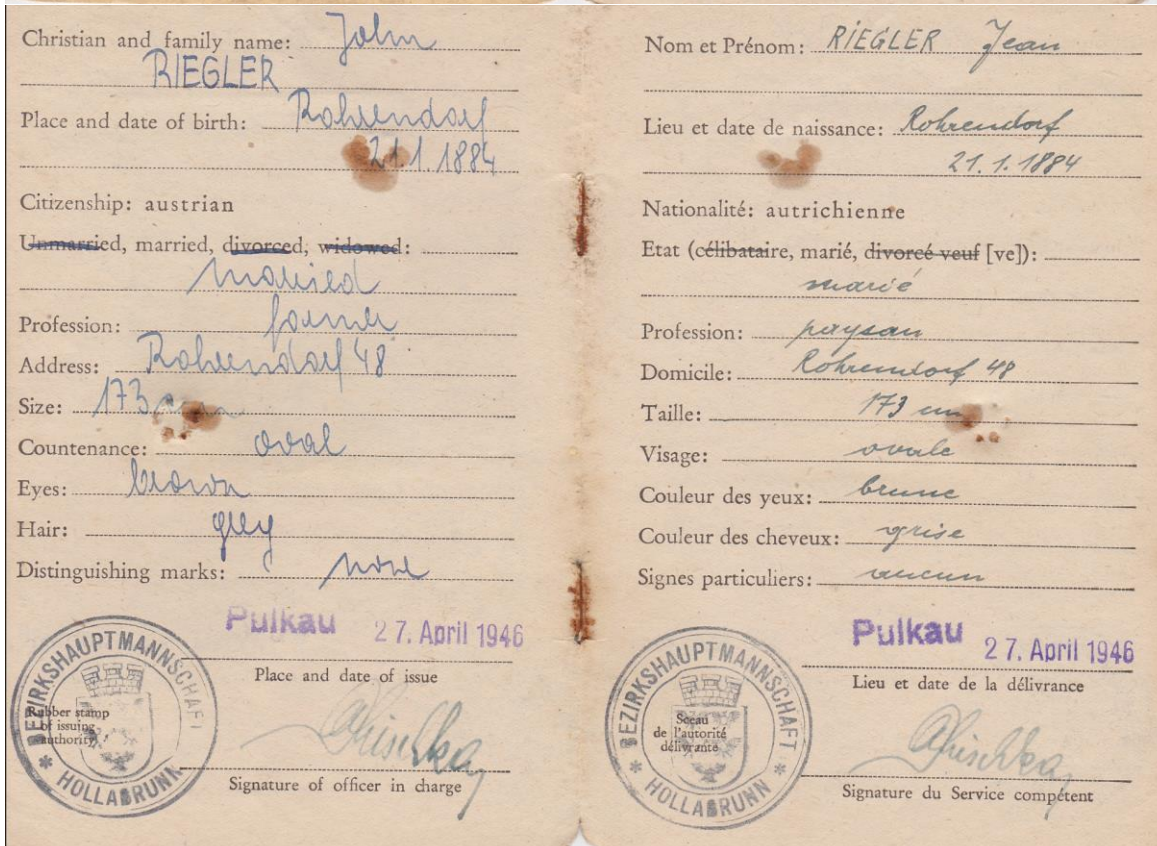 Christian and family name: John
RIEGLER
Place and date of birth: Rohrendorf
21.1.1884
Citizenship: austrian
Unmarried, married, divorced, widowed:
married
Profession: farmer
Address: Rohrendorf 48
Size: 173 cm
Countenance: oval
Eyes: brown
Hair: grey
Distinguishing marks: none
Pulkau 27. April 1946
Place and date of issue
BEZIRKSHAUPTMANNSCHAFT
* HOLLABRUNN *
Rubber stamp
of issuing
authority
Signature of officer in charge
Nom et Prénom: RIEGLER Jean
Lieu et date de naissance: Rohrendorf
21. 1. 1884
Nationalité: autrichienne
Etat (célibataire, marié, divorcé veuf [ve]):
marié
Profession: paysan
Domicile: Rohrendorf 48
Taille: 173 cm
Visage: ovale
Couleur des yeux: brune
Couleur des cheveux: grise
Signes particuliers: aucun
Pulkau 27. April 1946
Lieu et date de la délivrance
BEZIRKSHAUPTMANNSCHAFT
* HOLLABRUNN *
Sceau
de l'autorité
délivrante
Signature du Service compétent